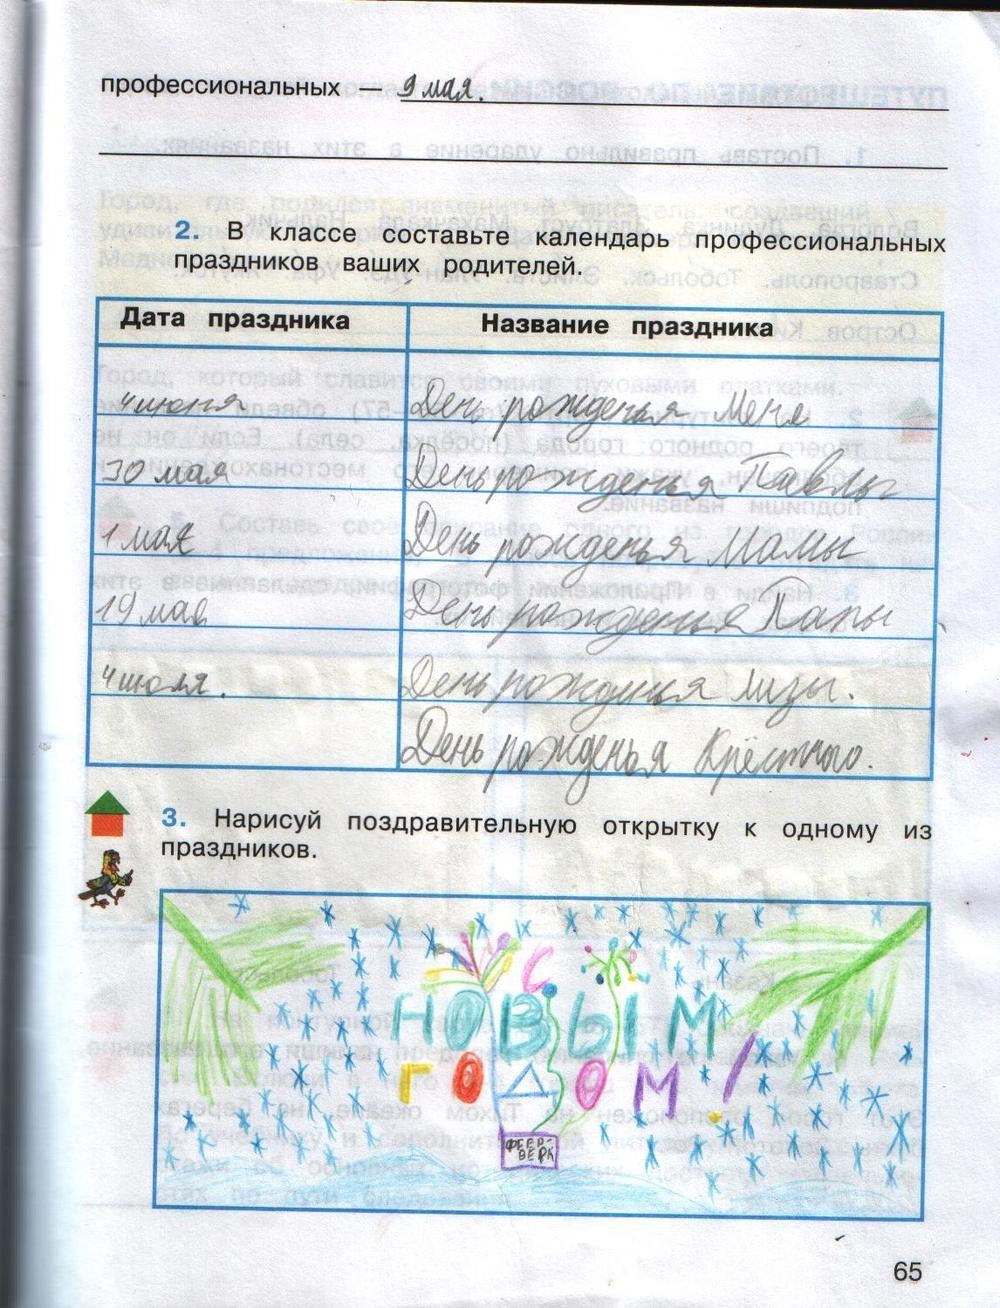 профессиональных — 9 мая.
2. В классе составьте календарь профессиональных
праздников ваших родителей.
Дата праздника Название праздника
4 июня День рожденья Меня
30 мая День рожденья Павлы
1 мая День рожденья Мамы
19 мая День рожденья Папы
4 июля. День рожденья Лизы.
День рожденья Крёстного.
3. Нарисуй поздравительную открытку к одному из
праздников.
С
НОВЫМ
ГОДОМ!
ФЕЕР-
ВЕРК
65